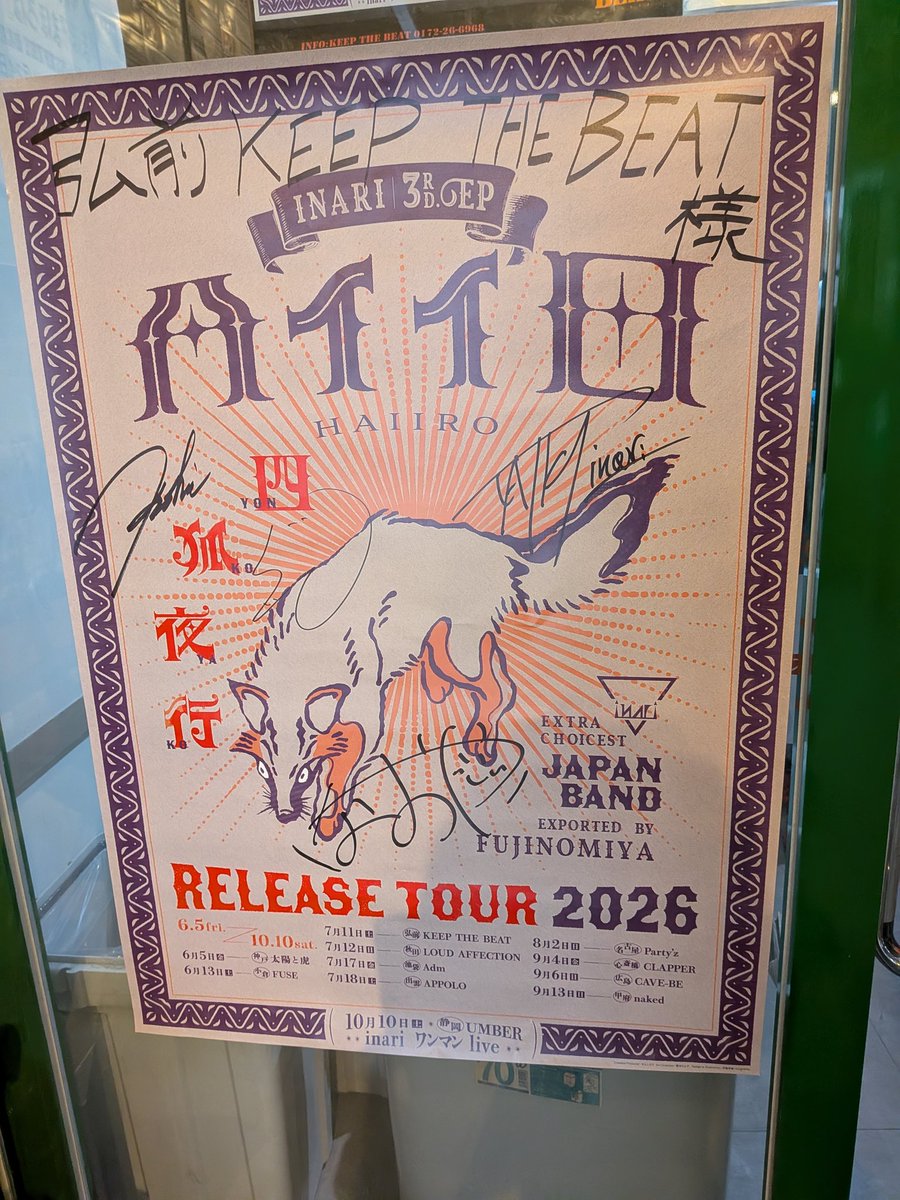 INFO:KEEP THE BEAT 0172-26-6968
弘前 KEEP THE BEAT
様
INARI 3RD.EP
HAIIRO
四
YON
狐
KO
夜
YA
行
KO
inari
inari
EXTRA
CHOICEST
JAPAN
BAND
EXPORTED BY
FUJINOMIYA
RELEASE TOUR 2026
6.5fri.
10.10sat.
6月5日金 神戸 太陽と虎
6月13日土 本倉 FUSE
7月11日土 弘前 KEEP THE BEAT
7月12日日 秋田 LOUD AFFECTION
7月17日金 池袋 Adm
7月18日土 出雲 APPOLO
8月2日日 名古屋 Party'z
9月4日金 心斎橋 CLAPPER
9月6日日 広島 CAVE-BE
9月13日日 甲府 naked
10月10日土・静岡 UMBER
inari ワンマン live
70